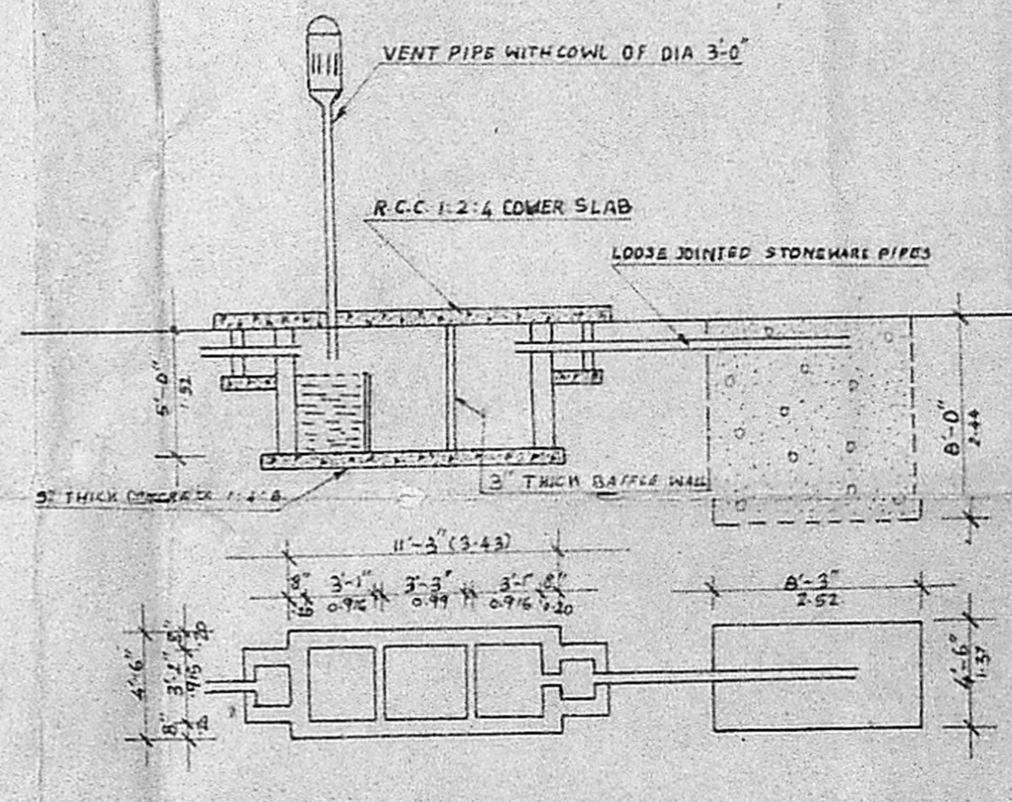 VENT PIPE WITH COWL OF DIA 3'-0"
R.C.C. 1:2:4 COVER SLAB
LOOSE JOINTED STONEWARE PIPES
5'-0"
1.52
8'-0"
2.44
THICK CONCRETE
3" THICK BAFFLE WALL
11'-3" (3.43)
8" 3'-1" 3'-3" 3'-1" 8"
0.916 0.99 0.916 0.20
8'-3"
2.52
4'-6"
8" .20
3'-2" .915
8" .20
4'-6"
1.37